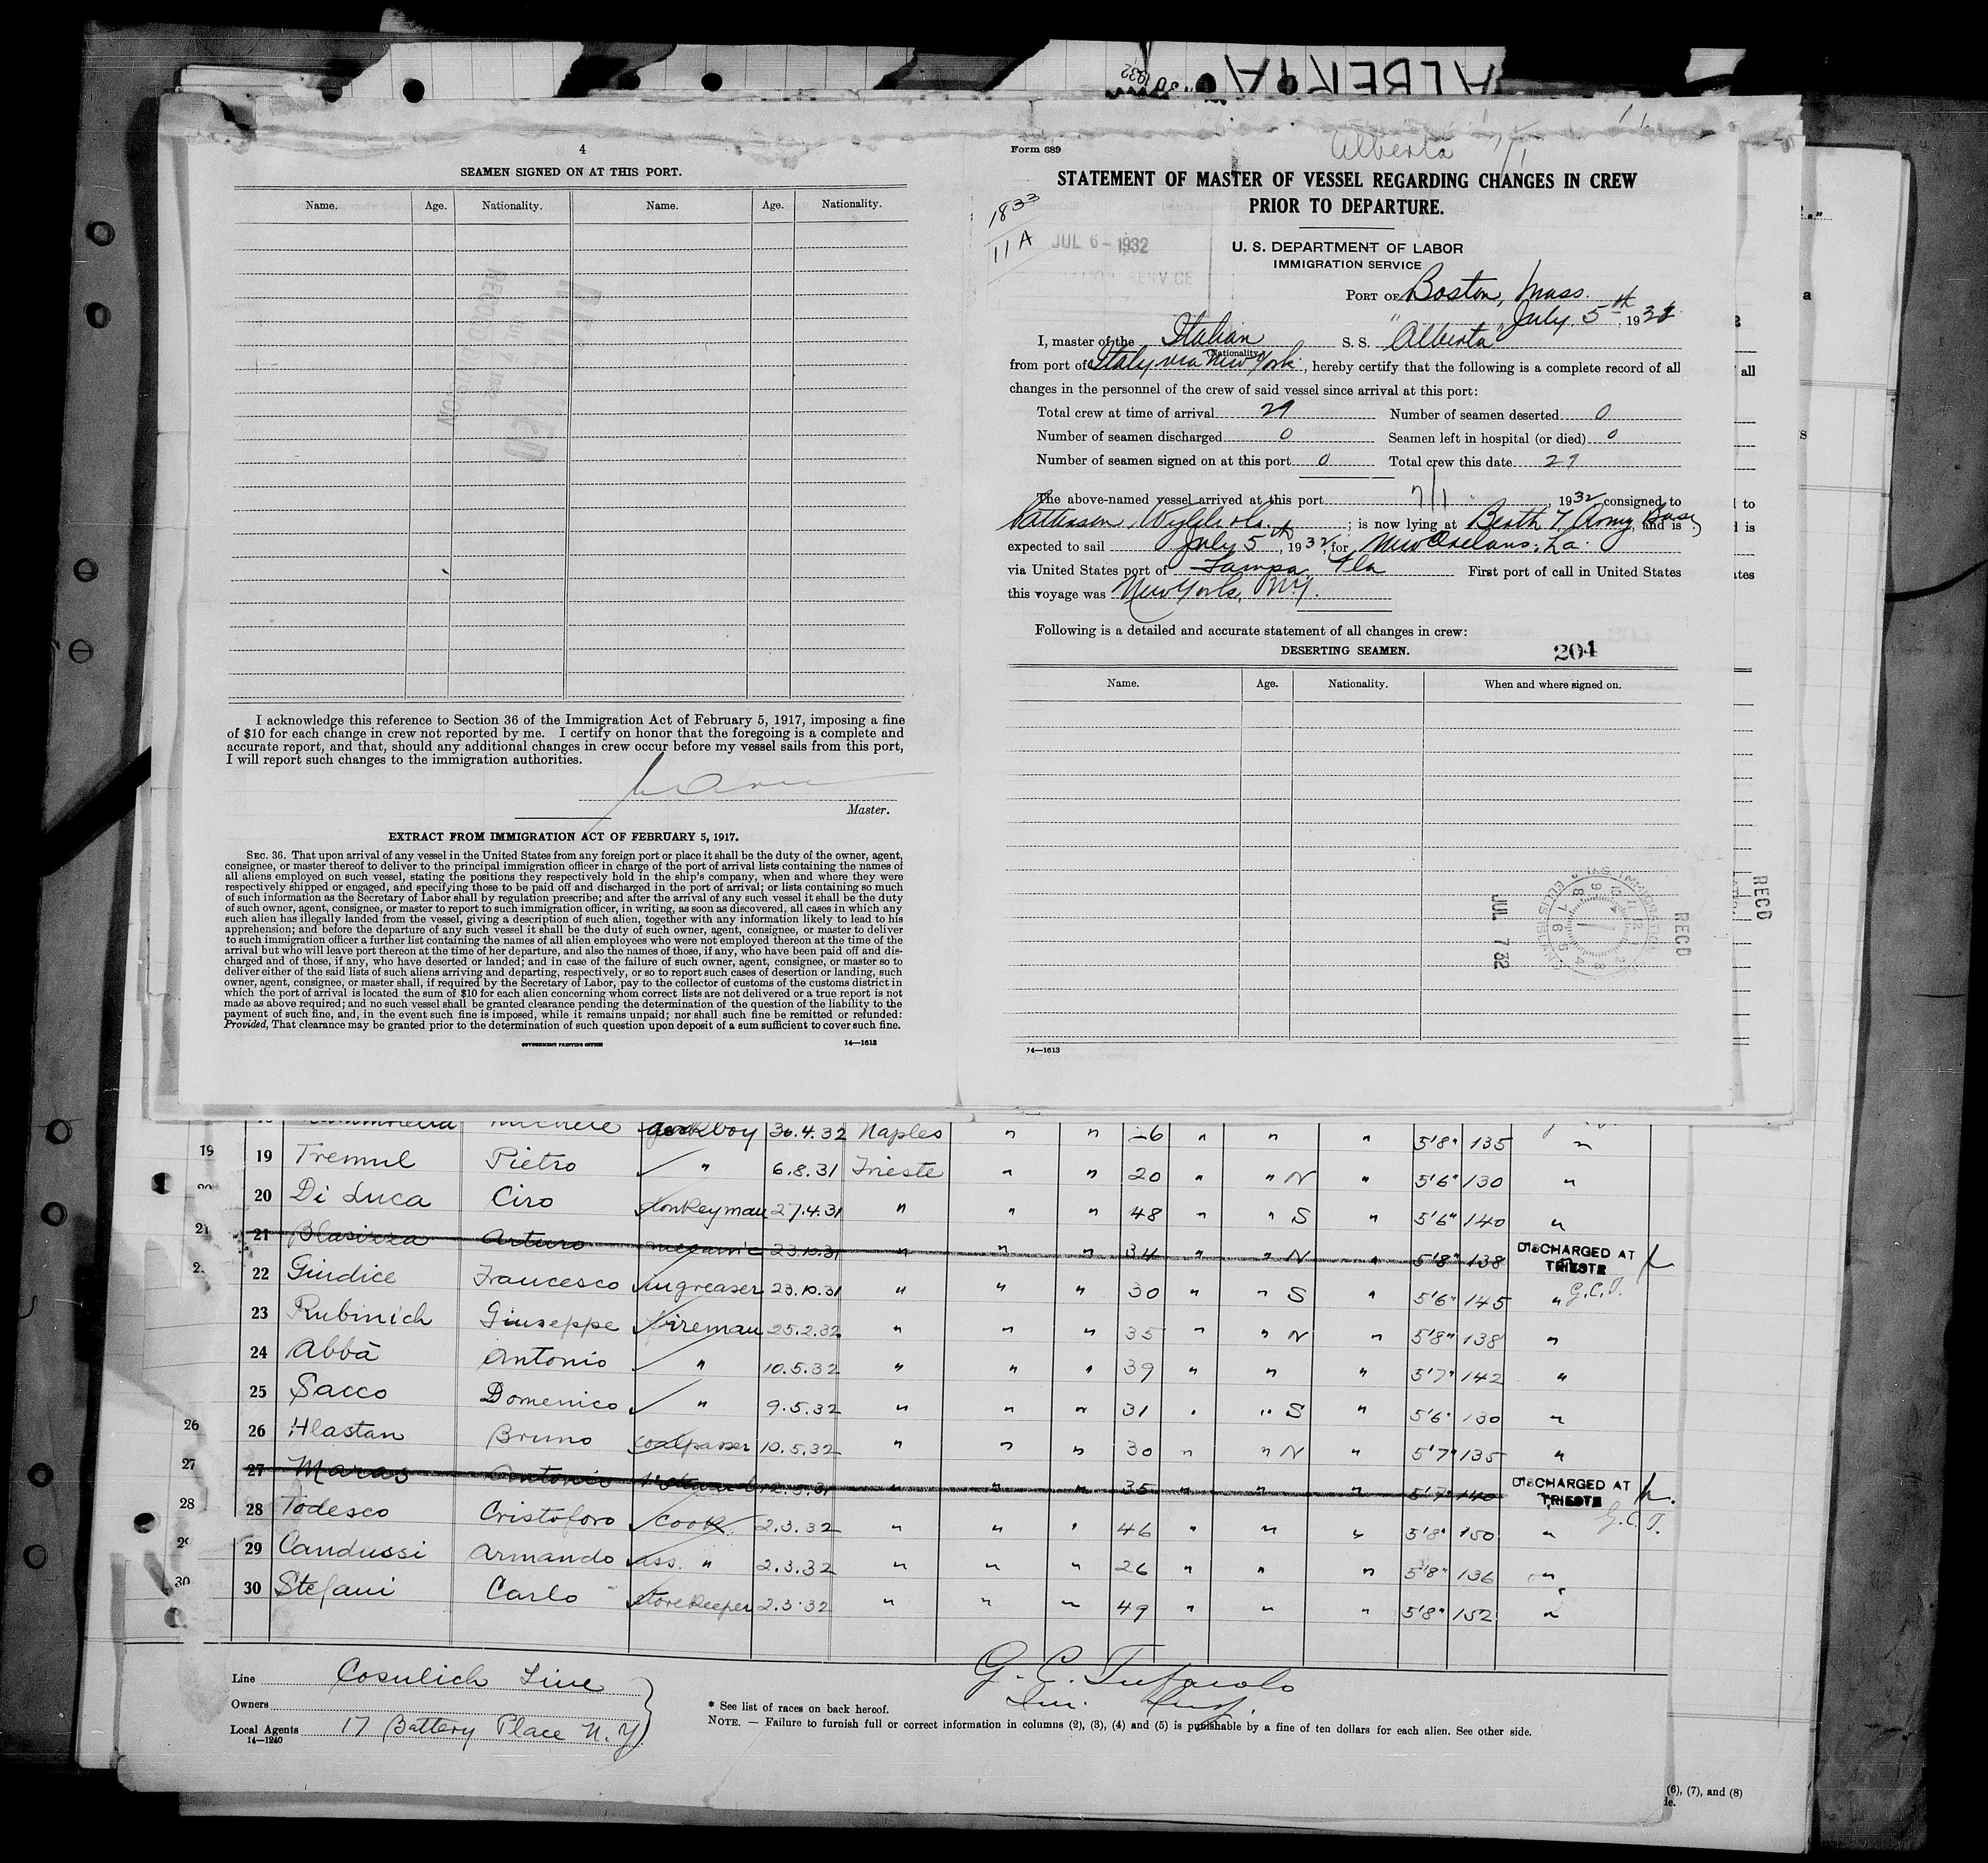 ALBERTA
1932
4
SEAMEN SIGNED ON AT THIS PORT.
Name. Age. Nationality. Name. Age. Nationality.
RECEIVED
RECORD DIVISION
I acknowledge this reference to Section 36 of the Immigration Act of February 5, 1917, imposing a fine
of $10 for each change in crew not reported by me. I certify on honor that the foregoing is a complete and
accurate report, and that, should any additional changes in crew occur before my vessel sails from this port,
I will report such changes to the immigration authorities.
Master.
EXTRACT FROM IMMIGRATION ACT OF FEBRUARY 5, 1917.
SEC. 36. That upon arrival of any vessel in the United States from any foreign port or place it shall be the duty of the owner, agent,
consignee, or master thereof to deliver to the principal immigration officer in charge of the port of arrival lists containing the names of
all aliens employed on such vessel, stating the positions they respectively hold in the ship's company, when and where they were
respectively shipped or engaged, and specifying those to be paid off and discharged in the port of arrival; or lists containing so much
of such information as the Secretary of Labor shall by regulation prescribe; and after the arrival of any such vessel it shall be the duty
of such owner, agent, consignee, or master to report to such immigration officer, in writing, as soon as discovered, all cases in which any
such alien has illegally landed from the vessel, giving a description of such alien, together with any information likely to lead to his
apprehension; and before the departure of any such vessel it shall be the duty of such owner, agent, consignee, or master to deliver
to such immigration officer a further list containing the names of all alien employees who were not employed thereon at the time of the
arrival but who will leave port thereon at the time of her departure, and also the names of those, if any, who have been paid off and dis-
charged and of those, if any, who have deserted or landed; and in case of the failure of such owner, agent, consignee, or master so to
deliver either of the said lists of such aliens arriving and departing, respectively, or so to report such cases of desertion or landing, such
owner, agent, consignee, or master shall, if required by the Secretary of Labor, pay to the collector of customs of the customs district in
which the port of arrival is located the sum of $10 for each alien concerning whom correct lists are not delivered or a true report is not
made as above required; and no such vessel shall be granted clearance pending the determination of the question of the liability to the
payment of such fine, and, in the event such fine is imposed, while it remains unpaid; nor shall such fine be remitted or refunded:
Provided, That clearance may be granted prior to the determination of such question upon deposit of a sum sufficient to cover such fine.
GOVERNMENT PRINTING OFFICE 14—1613
Form 689 Alberta 7/1
STATEMENT OF MASTER OF VESSEL REGARDING CHANGES IN CREW
PRIOR TO DEPARTURE.
1833
11A
JUL 6 - 1932
U. S. DEPARTMENT OF LABOR
IMMIGRATION SERVICE
PORT OF Boston, Mass.
July 5th, 1932
I, master of the Italian S. S. "Alberta"
(Nationality)
from port of Italy via New York, hereby certify that the following is a complete record of all
changes in the personnel of the crew of said vessel since arrival at this port:
Total crew at time of arrival 29 Number of seamen deserted 0
Number of seamen discharged 0 Seamen left in hospital (or died) 0
Number of seamen signed on at this port 0 Total crew this date 29
The above-named vessel arrived at this port 7/1, 1932 consigned to
Patterson, Wylde & Co.; is now lying at Berth 7 Army Base, and is
expected to sail July 5th, 1932, for New Orleans, La.
via United States port of Tampa, Fla First port of call in United States
this voyage was New York, N.Y.
Following is a detailed and accurate statement of all changes in crew:
DESERTING SEAMEN. 204
Name. Age. Nationality. When and where signed on.
JUL 7 32
RECD
RECD
14—1613
all
to
is
tes
Michele deckboy 30.4.32 Naples " " 26 " " " 5'8" 135 "
19 19 Tremul Pietro " 6.8.31 Trieste " " 20 " " N " 5'6" 130 "
20 Di Luca Ciro donkeyman 27.4.31 " " " 48 " " S " 5'6" 140 "
21 21 Blasizza Arturo mecanic 23.10.31 " " " 34 " " N " 5'8" 138 DISCHARGED AT TRIESTE
22 Giudice Francesco ingreaser 23.10.31 " " " 30 " " S " 5'6" 145 " G.C.T.
23 Rubinich Giuseppe fireman 25.2.32 " " " 35 " " N " 5'8" 138 "
24 Abbà Antonio " 10.5.32 " " " 39 " " " 5'7" 142 "
25 Sacco Domenico " 9.5.32 " " " 31 " " S " 5'6" 130 "
26 26 Hlastan Bruno coalpasser 10.5.32 " " " 30 " " N " 5'7" 135 "
27 27 Maras Antonio " " " 35 " " " 5'7" 140 DISCHARGED AT TRIESTE
28 28 Todesco Cristoforo cook 2.3.32 " " " 46 " " " 5'8" 150 " G.C.T.
29 29 Candussi Armando ass. " 2.3.32 " " " 26 " " " 5'8" 136 "
30 30 Stefani Carlo storekeeper 2.3.32 " " " 49 " " " 5'8" 152 "
Line Cosulich Line
Owners
Local Agents 17 Battery Place N.Y.
14—1240
G. C. Tufarolo
Imm. Insp.
* See list of races on back hereof.
NOTE. — Failure to furnish full or correct information in columns (2), (3), (4) and (5) is punishable by a fine of ten dollars for each alien. See other side.
(6), (7), and (8)
de.